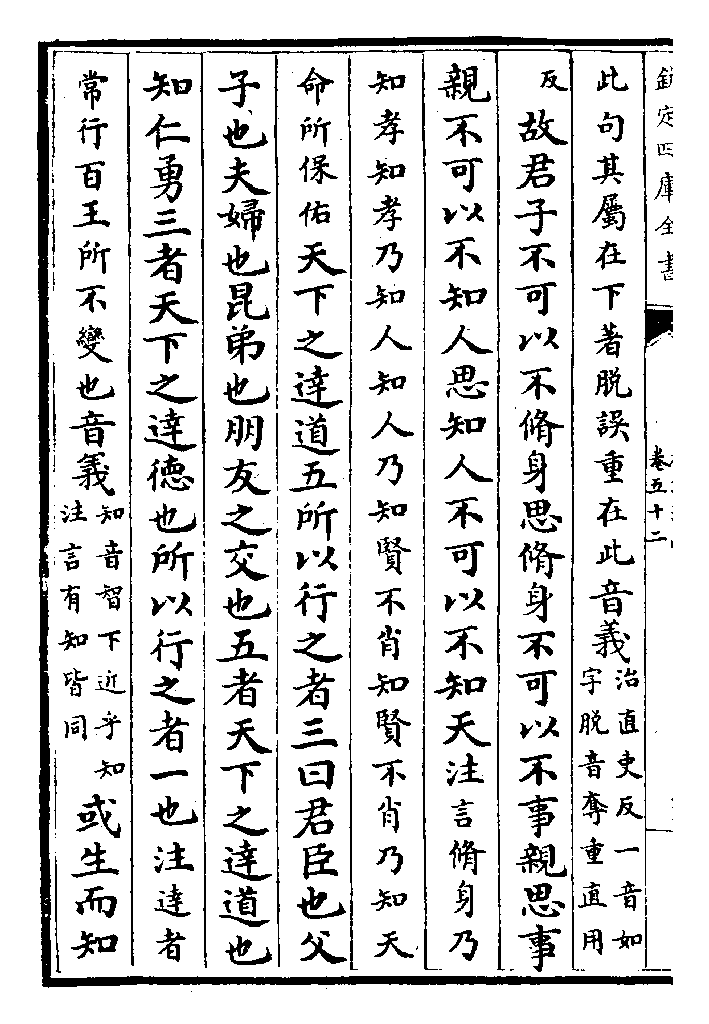 欽定四庫全書
卷五十二
此句其屬在下著脫誤重在此音義治直吏反一音如字脫音奪重直用
反故君子不可以不脩身思脩身不可以不事親思事
親不可以不知人思知人不可以不知天注言脩身乃
知孝知孝乃知人知人乃知賢不肖知賢不肖乃知天
命所保佑天下之達道五所以行之者三曰君臣也父
子也夫婦也昆弟也朋友之交也五者天下之達道也
知仁勇三者天下之達德也所以行之者一也注達者
常行百王所不變也音義知音智下近乎知注言有知皆同或生而知